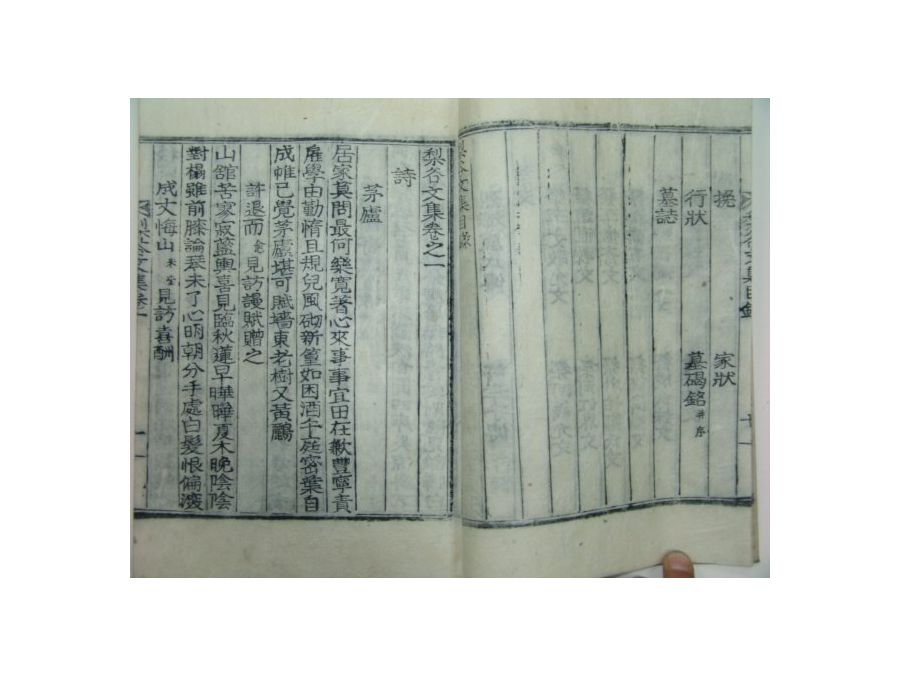 挽 家狀
行狀 墓碣銘并序
墓誌
梨谷文集卷之一
詩
茅廬
居家莫問最何樂寬著心來事事宜田在歉豐寧責
雇學由勤惰且規兒風砌新篁如困酒午庭密葉自
成帷已覺茅廬堪可賦墻東老樹又黃鸝
許退而 見訪謾賦贈之
山舘苦寥寂藍輿喜見臨秋蓮早曄曄夏木晩陰陰
對榻雖前膝論琴未了心明朝分手處白髮恨偏深
成丈悔山 見訪喜酬